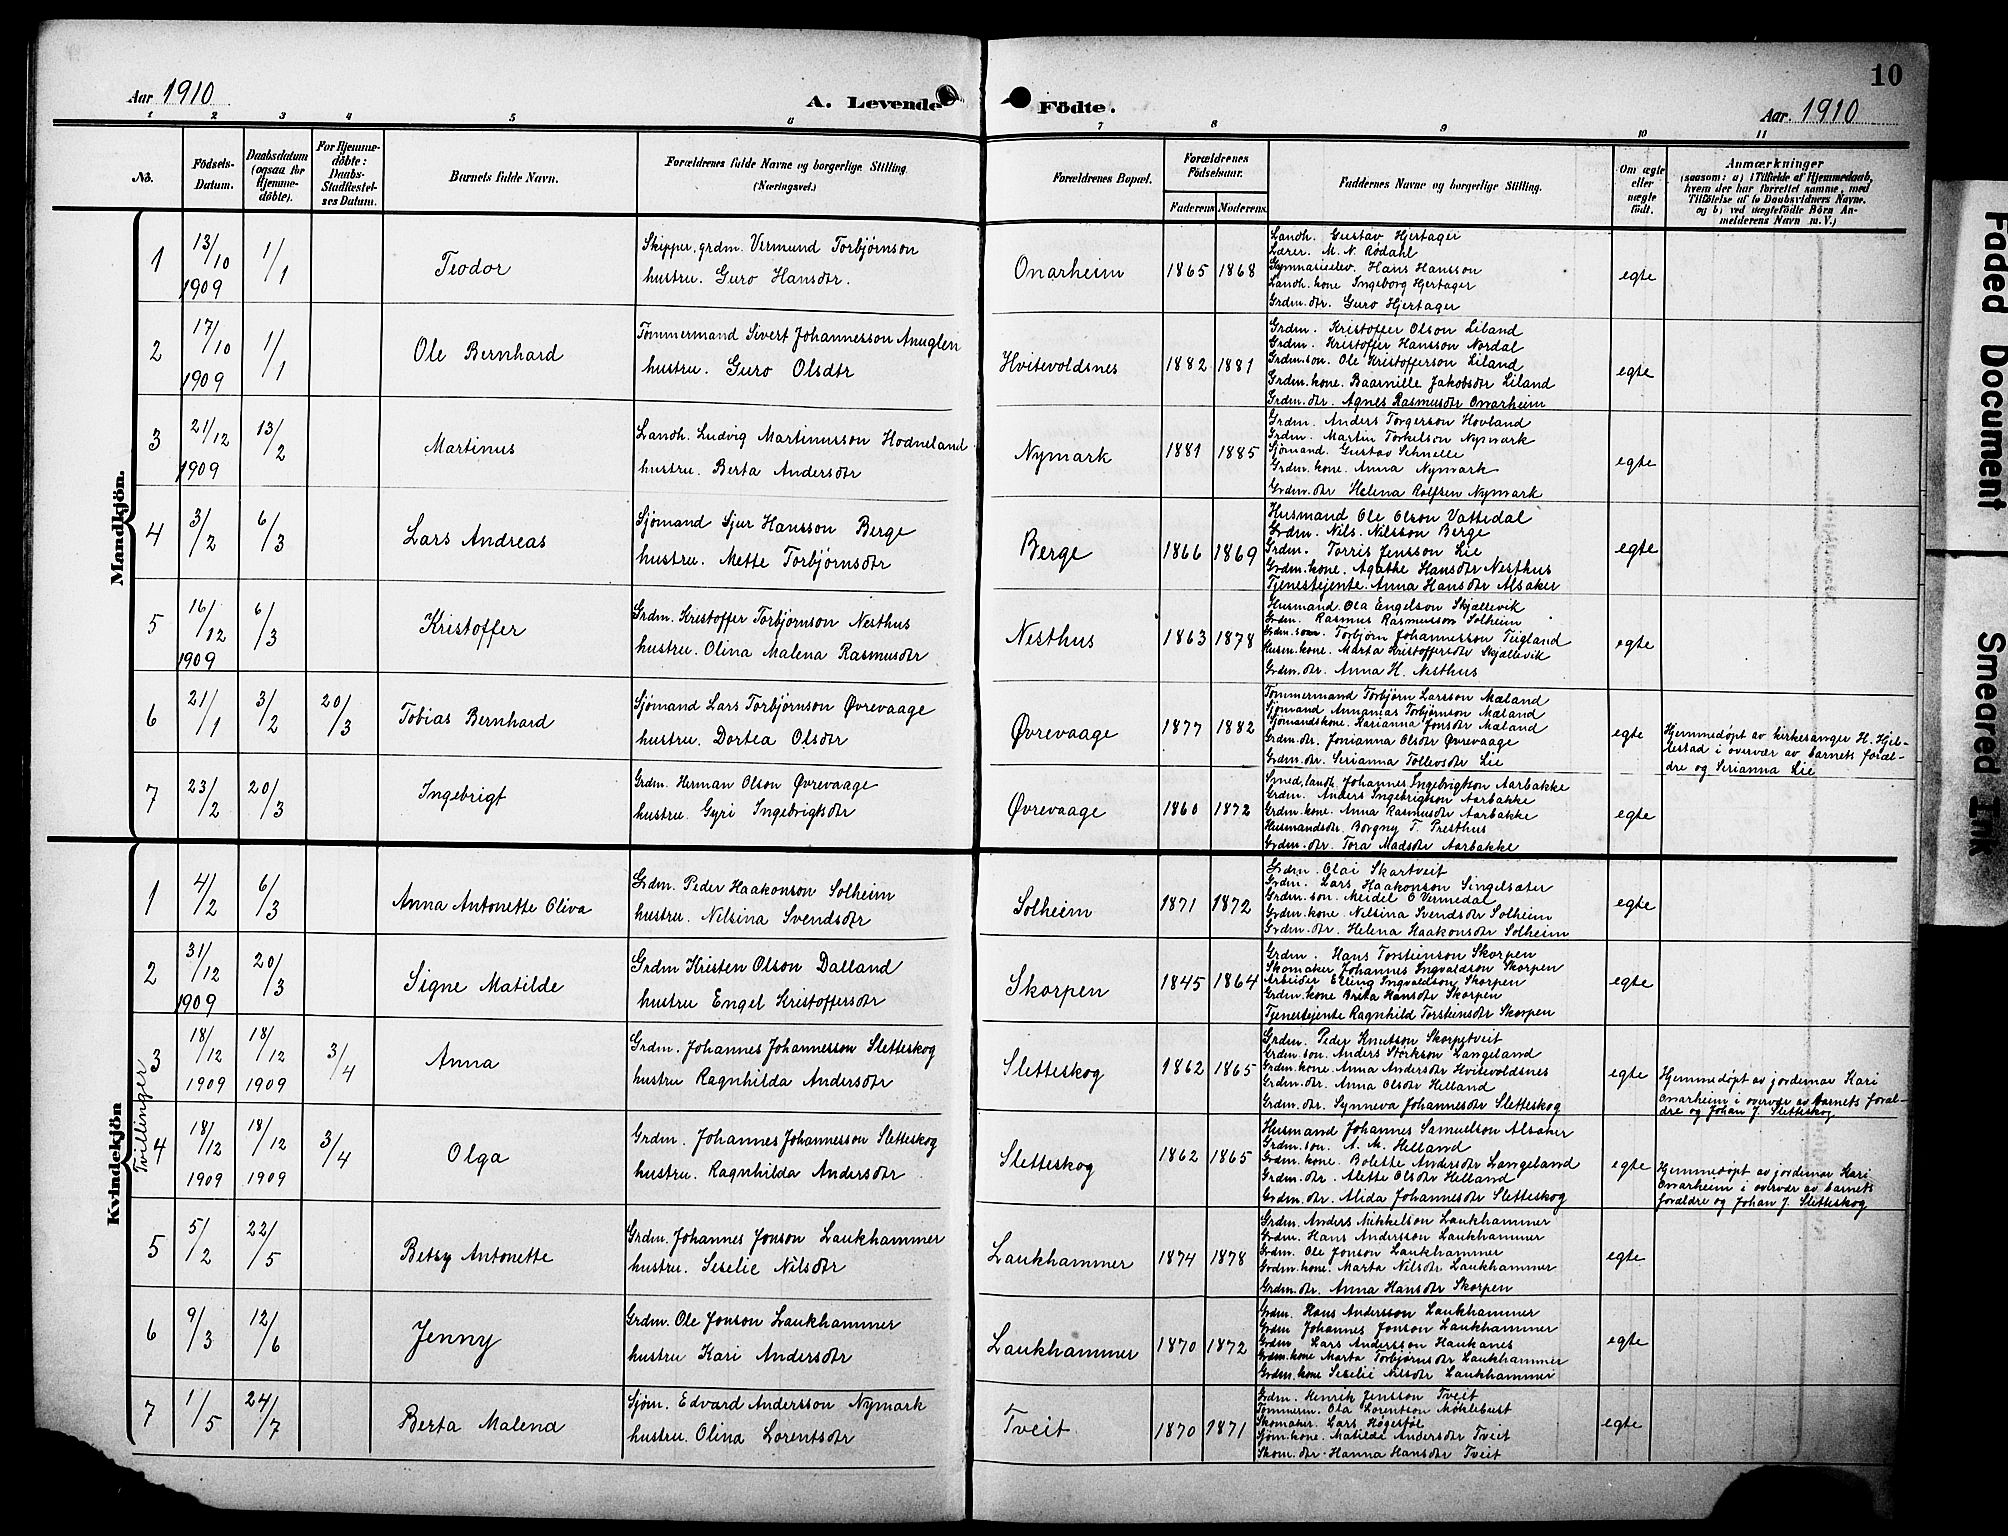 10
Aar 1910
A. Levende Födte.
Aar. 1910
1 2 3 4 5 6 7 8 9 10 11
No.
Födsels-
Datum.
Daabsdatum
(ogsaa for
Hjemme-
döbte).
For Hjemme-
döbte:
Daabs-
Stadfæstel-
ses Datum.
Barnets fulde Navn.
Forældrenes fulde Navne og borgerlige Stilling
(Næringsvei.)
Forældrenes Bopæl.
Forældrenes
Födselsaar.
Faderens Moderens
Faddernes Navne og borgerlige Stilling.
Om ægte
eller
uægte
födt.
Anmærkninger
(saasom: a) i Tilfælde af Hjemmedaab,
hvem der har forrettet samme, med
Tilföielse af to Daabsvidners Navne,
og b) ved uægtefödte Börn An-
melderens Navn m. V.)
Mandkjön.
1 13/10 1909 1/1 Teodor
Skipper, grdm. Vermund Torbjørnson
hustru. Guro Hansdtr.
Onarheim 1865 1868
Landh. Gustav Hjertager
Lærer. M. N. Rödahl
Gymnasieelev. Hans Hansson
Landh. kone Ingeborg Hjertager
Grdm. dtr. Guro Hjertager
egte
2 17/10 1909 1/1 Ole Bernhard
Tømmermand Sivert Johannesson Anuglen
hustru. Guro Olsdtr
Hvitevoldsnes 1882 1881
Grdm. Kristoffer Olson Liland
Grdm. Kristoffer Hansson Nordal
Grdm.son. Ole Kristofferson Liland
Grdm.kone. Baarnille Jakobsdtr Liland
Grdm. dtr. Agnes Rasmusdtr Onarheim
egte
3 21/12 1909 13/2 Martinus
Landh. Ludvig Martinusson Hodneland
hustru. Berta Andersdtr
Nymark 1881 1885
Grdm. Anders Torgerson Hovland
Grdm. Martin Torkelson Nymark
Sjømand. Gustav Schnelle
Grdm. kone. Anna Nymark
Grdm. dtr Helena Rolfsen Nymark
egte
4 3/2 6/3 Lars Andreas
Sjømand Sjur Hansson Berge
hustru. Mette Torbjørnsdtr
Berge 1866 1869
Husmand Ole Olson Vattedal
Grdm. Nils. Nilsson Berge
Grdm. Torris Jensson Lie
Grdm.kone. Agathe Hansdtr Nesthus
Tjenestejente Anna Hansdtr Alsaker
egte
5 16/12 1909 6/3 Kristoffer
Grdm. Kristoffer Torbjørnson Nesthus
hustru. Olina Malena Rasmusdtr
Nesthus 1863 1878
Husmand. Ola Engelson Skjællevik
Grdm. Rasmus Rasmusson Solheim
Grdm. son. Torbjørn Johannesson Teigland
Husm.kone. Marta Kristoffersdtr Skjællevik
Grdm. dtr. Anna H. Nesthus
egte
6 21/1 3/2 20/3 Tobias Bernhard
Sjømand Lars Torbjørnson Øvrevaage
hustru. Dortea Olsdtr
Øvrevaage 1877 1882
Tømmermand Torbjørn Larsson Mæland
Sjömand Annanias Torbjørnson Mæland
Sjømandskone. Karianna Jonsdtr Mæland
Grdm. dtr. Jonianna Olsdtr Øvrevaage
Grdm. dtr. Serianna Tollevsdtr Lie
egte
Hjemmedøpt av kirkesanger H. Hjel-
lestad i overvær av barnets foræl-
dre og Serianna Lie
7 23/2 20/3 Ingebrigt
Grdm. Herman Olson Øvrevaage
hustru. Gyri Ingebrigtsdtr
Øvrevaage 1860 1872
Smed, landh. Johannes Ingebrigtson Aarbakke
Grdm. Anders Ingebrigtson Aarbakke
Grdm. kone. Anna Rasmusdtr Aarbakke
Husmandsdtr. Borgny T. Presthus
Grdm. dtr. Tora Madsdtr Aarbakke
egte
Kvindekjön
1 4/2 6/3 Anna Antonette Oliva
Grdm. Peder Haakonson Solheim
hustru. Nilsina Svendsdtr
Solheim 1871 1872
Grdm. Olai Skartveit
Grdm. Lars Haakonson Singelsæter
Grdm. son. Meidel O Vermedal
Grdm. kone. Nilsina Svendsdtr Solheim
Grdm. dtr. Helena Haakonsdtr Solheim
egte
2 31/12 1909 20/3 Signe Matilde
Grdm Kristen Olson Dalland
hustru Engel Kristoffersdtr
Skorpen 1845 1864
Grdm. Hans Torsteinson Skorpen
Skomaker Johannes Ingvaldson Skorpen
Arbeider Erling Ingvaldson Skorpen
Grdm. kone Brita Hansdtr Skorpen
Tjenestejente Ragnhild Torsteinsdtr Skorpen
egte
Tvillinger
3 18/12 1909 18/12 1909 3/4 Anna
Grdm. Johannes Johannesson Sletteskog
hustru Ragnhilda Andersdtr
Sletteskog 1862 1865
Grdm. Peder Knutson Skorpetveit
Grdm. son. Anders Størkson Langeland
Grdm. kone. Anna Andersdtr Hvitevoldsnes
Grdm. dtr. Anna Olsdtr Helland
Grdm. dtr. Synneva Johannesdtr Sletteskog
egte
Hjemmedøpt av jordemor Kari
Onarheim i overvær av barnets foræl-
dre og Johan J. Sletteskog
4 18/12 1909 18/12 1909 3/4 Olga
Grdm. Johannes Johannesson Sletteskog
hustru. Ragnhilda Andersdtr
Sletteskog 1862 1865
Husmand Johannes Samuelson Alsaker
Grdm. son. A. M. Helland
Grdm. kone. Bolette Andersdtr Langeland
Grdm. dtr. Alette Olsdtr Helland
Grdm. dtr. Alida Johannesdtr Sletteskog
egte
Hjemmedøpt av jordemor Kari
Onarheim i overvær av barnets
forældre og Johan J. Sletteskog
5 5/2 22/5 Betsy Antonette
Grdm. Johannes Jonson Laukhammer
hustru. Seselie Nilsdtr
Laukhammer 1874 1878
Grdm. Anders Mikkelson Laukhammer
Grdm. Hans Andersson Laukhammer
Grdm. Ole Jonson Laukhammer
Grdm. kone. Marta Nilsdtr Laukhammer
Grdm. dtr. Anna Hansdtr Skorpen
egte
6 9/3 12/6 Jenny
Grdm. Ole Jonson Laukhammer
hustru Kari Andersdtr
Laukhammer 1870 1872
Grdm. Hans Andersson Laukhammer
Grdm Johannes Jonson Laukhammer
Grdm Lars Andersson Haukanes
Grdm. kone Marta Torbjørnsdtr Laukhammer
Grdm. kone Seselie Nilsdtr Laukhammer
egte
7 1/5 24/7 Berta Malena
Sjøm. Edvard Andersson Nymark
hustru. Olina Lorentsdtr
Tveit 1870 1871
Grdm. Henrik Jensson Tveit
Tømmerm. Ola Lorentson Møhlebust
Skomaker. Lars Høgestøl
Sjøm. kone. Matilde Andersdtr Tveit
Skom. dtr. Hanna Hansdtr Tveit
egte
Faded Document
Smeared Ink